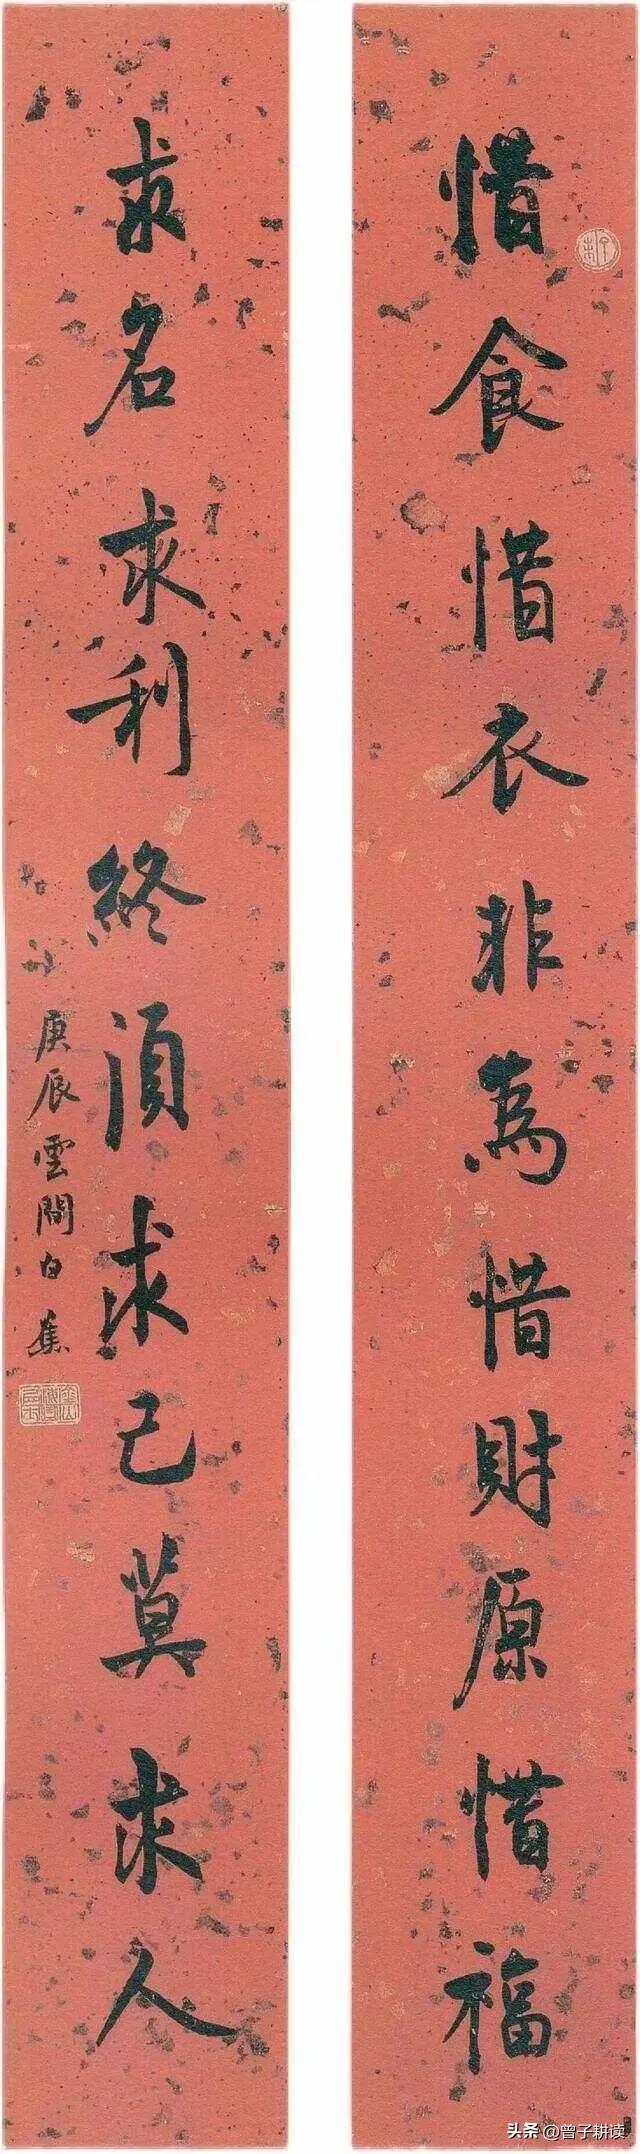 惜食惜衣非為惜財原惜福
求名求利終須求己莫求人
庚辰雲間白蕉
头条 @曾子耕读